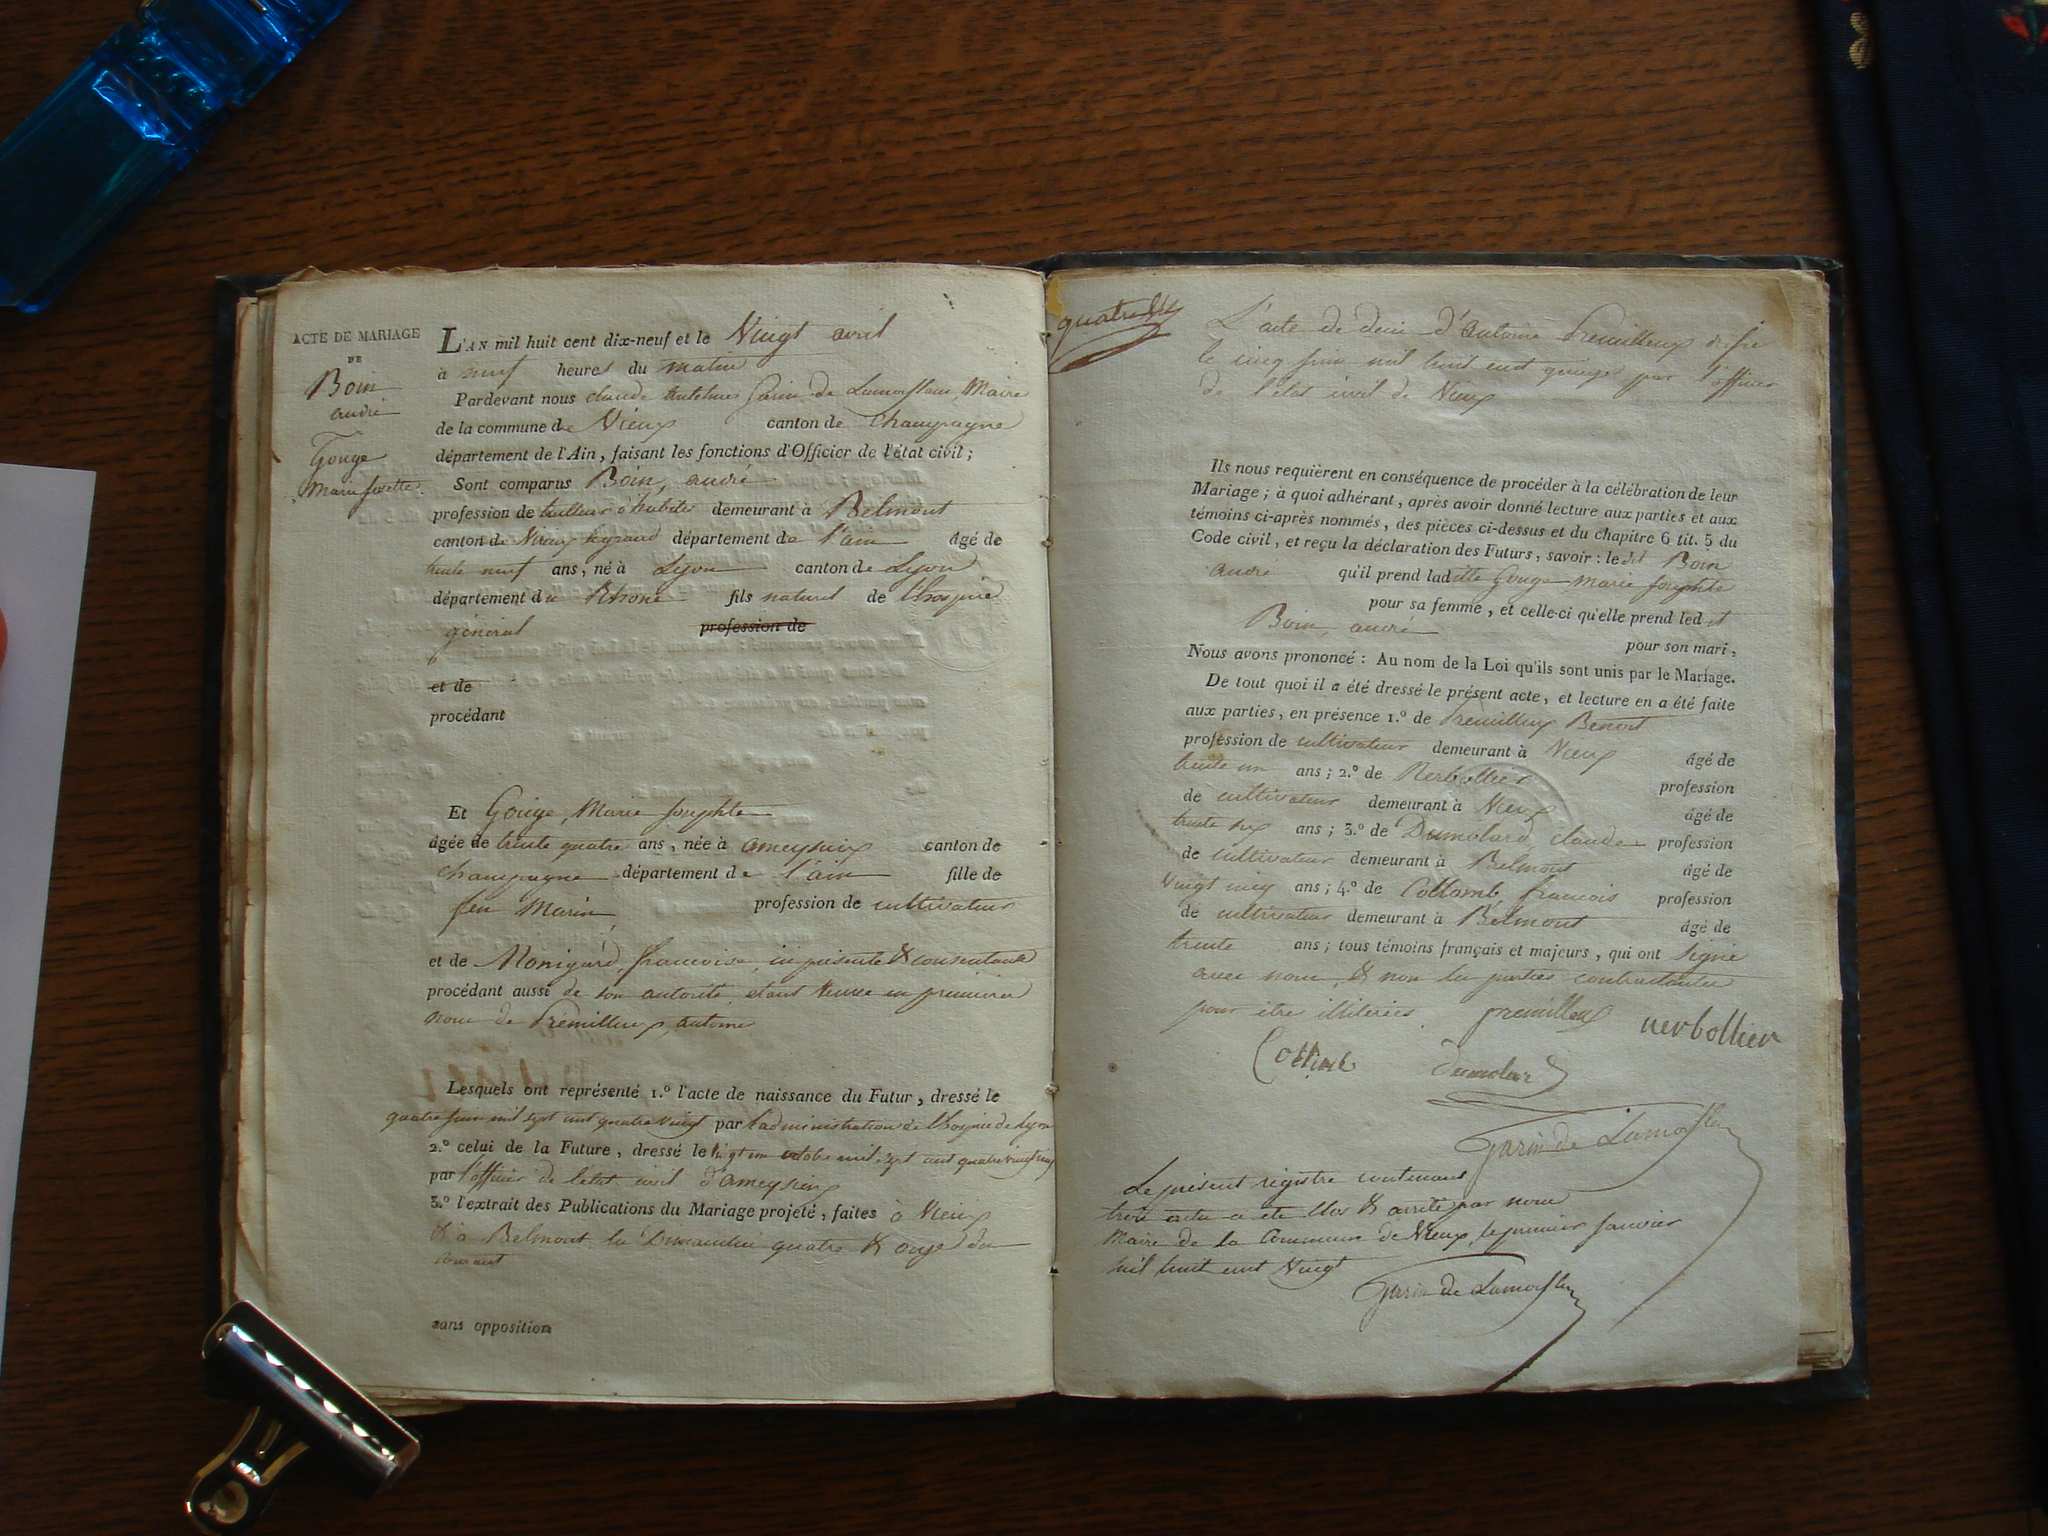 ACTE DE MARIAGE
DE
Boin
andré
Gouge
Marie josette
L'AN mil huit cent dix-neuf et le Vingt avril
à neuf heures du matin
Pardevant nous claude anthelme Garin de Lamorflan, Maire
de la commune de Vieux canton de Champagne
département de l'Ain, faisant les fonctions d'Officier de l'état civil;
Sont comparus Boin, andré
profession de tailleur d'habits demeurant à Belmont
canton de Virieux legrand département de l'ain âgé de
trente neuf ans, né à Lyon canton de Lyon
département du Rhone fils naturel de l'hospice
général profession de
et de
procédant
Et Gouge, Marie josephte
âgée de trente quatre ans, née à ameyzieux canton de
champagne département de l'ain fille de
feu Marin profession de cultivateur
et de Monigard, francoise, ici présente & consentante
procédant aussi de son autorité, etant veuve en premiere
noce de Prémilleux, antoine
Lesquels ont représenté 1.º l'acte de naissance du Futur, dressé le
quatre juin mil sept cent quatre vingt par l'administration de l'hospice de Lyon
2.º celui de la Future, dressé le vingt un octobre mil sept cent quatre vingt
par l'officier de letat civil d'ameyzieux
3.º l'extrait des Publications du Mariage projeté, faites à Vieux
& à Belmont les Dimanches quatre & onze du
courant
sans opposition
quatre
L'acte de deces d'antoine Premilleux dressé
le cinq juin mil huit cent quinze par l'officier
de l'état civil de Vieux
Ils nous requièrent en conséquence de procéder à la célébration de leur
Mariage; à quoi adhérant, après avoir donné lecture aux parties et aux
témoins ci-après nommés, des pièces ci-dessus et du chapitre 6 tit. 5 du
Code civil, et reçu la déclaration des Futurs, savoir: le dit Boin
andré qu'il prend ladite Gouge Marie josephte
pour sa femme, et celle-ci qu'elle prend ledit
Boin, andré
pour son mari,
Nous avons prononcé: Au nom de la Loi qu'ils sont unis par le Mariage.
De tout quoi il a été dressé le présent acte, et lecture en a été faite
aux parties, en présence 1.º de Premilleux Benoit
profession de cultivateur demeurant à Vieux âgé de
trente un ans; 2.º de Verbollier profession
de cultivateur demeurant à Vieux âgé de
trente six ans; 3.º de Dumolard, claude profession
de cultivateur demeurant à Belmont âgé de
vingt cinq ans; 4.º de Collomb, francois profession
de cultivateur demeurant à Belmont âgé de
trente ans; tous témoins français et majeurs, qui ont signé
avec nous, & non les parties contractantes
pour être illiterées premilleux verbollier
Collomb dumolard
Garin de Lamorflan
Le présent registre contenant
trois actes a été clos & arrêté par nous
Maire de la Commune de Vieux, le premier janvier
mil huit cent vingt
Garin de Lamorflan